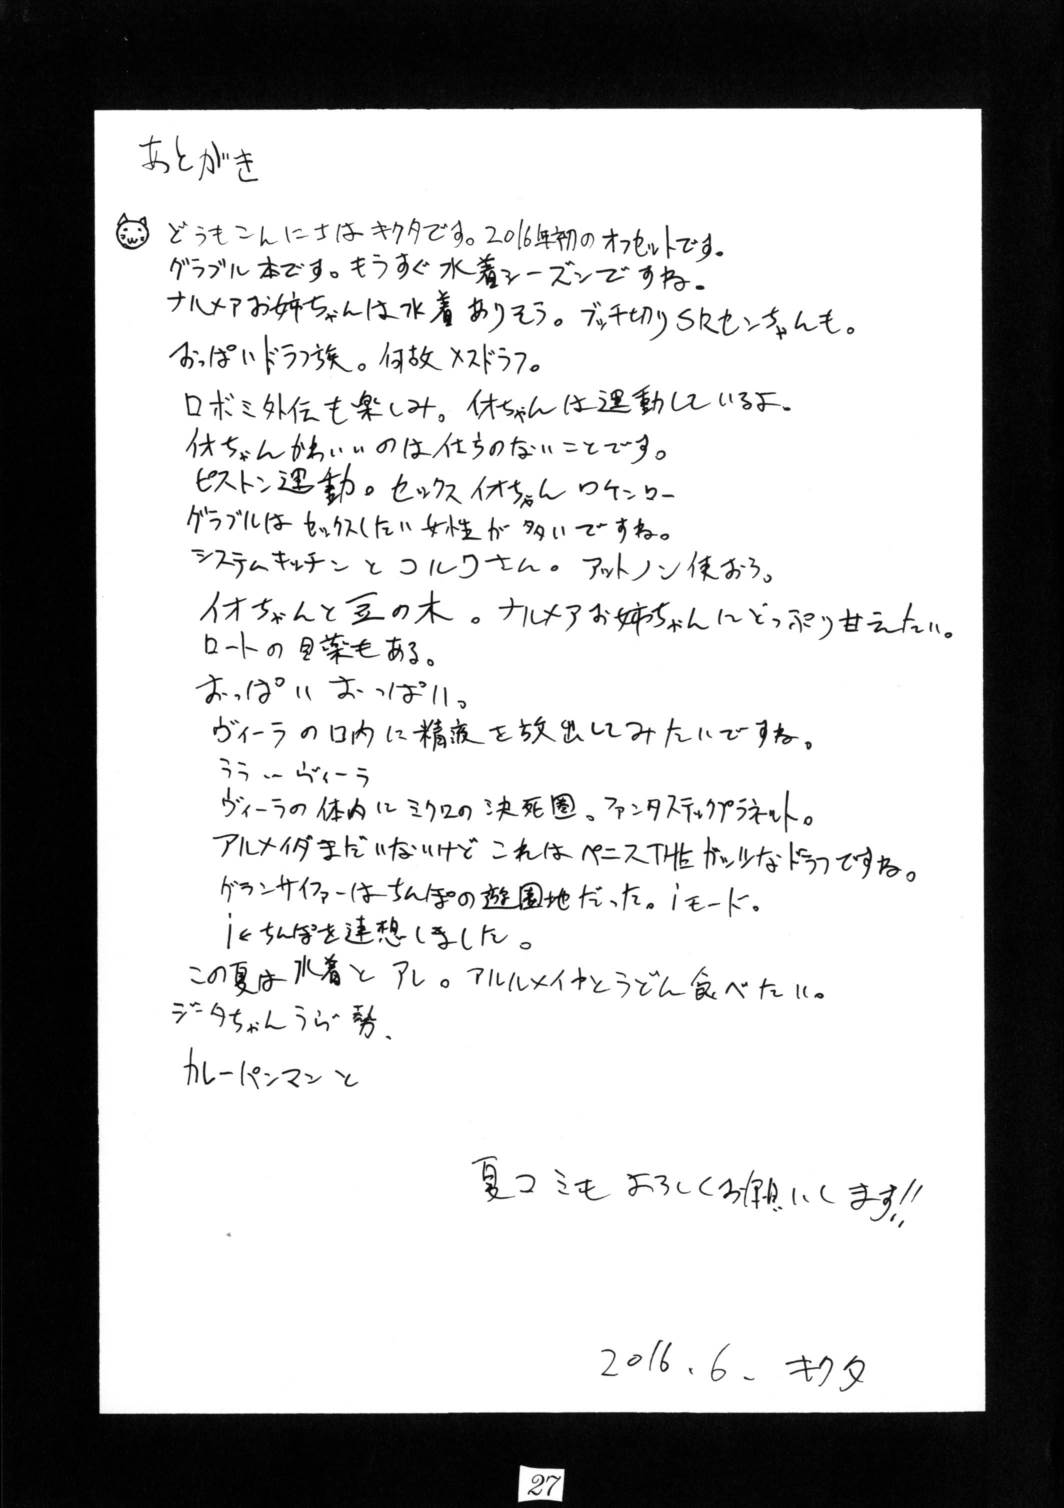 あとがき
どうもこんにちはキクタです。2016年初のオフセットです。
グラブル本です。もうすぐ水着シーズンですね。
ナルメアお姉ちゃんは水着ありそう。ブッチ切りSRセンちゃんも。
おっぱいドラフ族。何故メスドラフ。
ロボミ外伝も楽しみ。
グラブルはセックスしたい女性が多いですね。
システムキッチンとコルワさん。アットノン使おう。
イオちゃんと豆の木。ナルメアお姉ちゃんにどっぷり甘えたい。
ロートの目薬もある。
おっぱい おっぱい。
ヴィーラの口内に精液を放出してみたいですね。
ううぃーヴィーラ
ヴィーラの体内にミクロの決死圏。ファンタスティックプラネット。
アルメイダまだいないけどこれはペニスTHEガッツなドラフですね。
グランサイファーはちんぽの遊園地だった。iモード。
i←ちんぽを連想しました。
この夏は水着とアレ。アルルメイヤとうどん食べたい。
ジータちゃん 勢、
カレーパンマンと
夏コミもよろしくお願いします!!
2016.6. キクタ
27